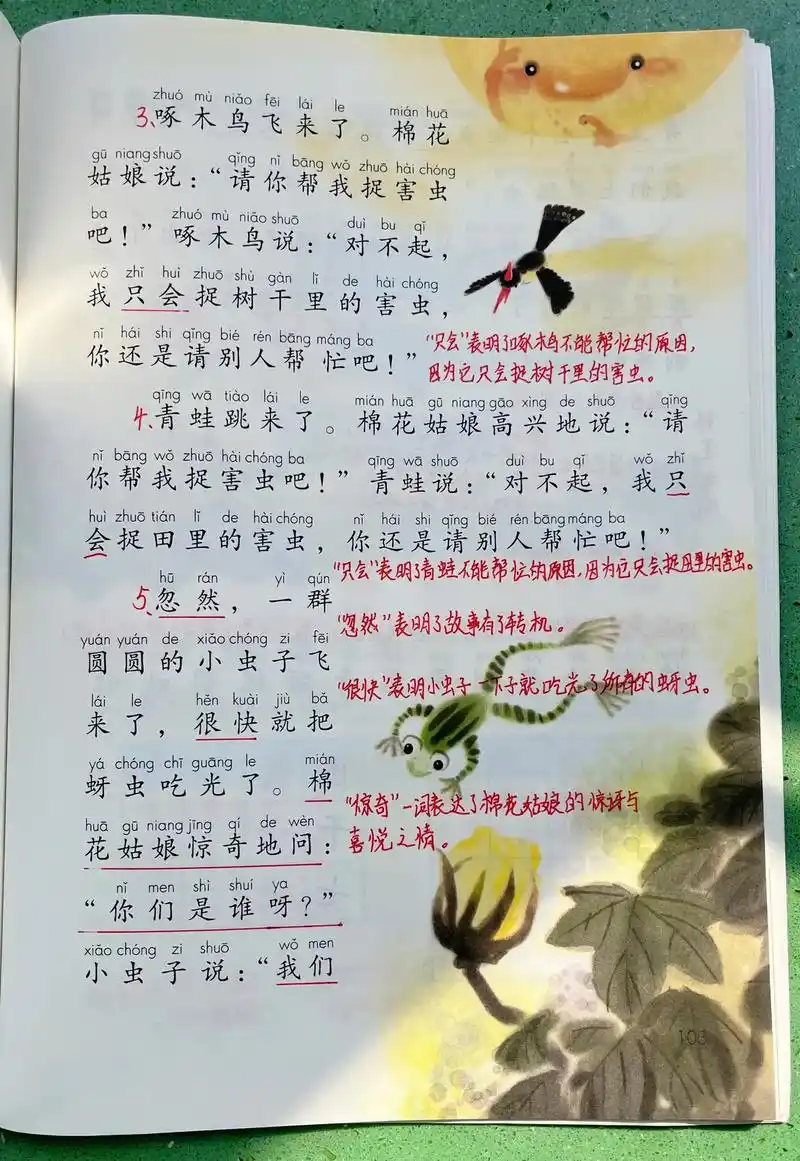 zhuó mù niǎo fēi lái le mián huā
3、啄木鸟飞来了。棉花
gū niang shuō qǐng nǐ bāng wǒ zhuō hài chóng
姑娘说：“请你帮我捉害虫
ba zhuó mù niǎo shuō duì bu qǐ
吧！”啄木鸟说：“对不起，
wǒ zhǐ huì zhuō shù gàn lǐ de hài chóng
我只会捉树干里的害虫，
nǐ hái shi qǐng bié rén bāng máng ba
你还是请别人帮忙吧！”
“只会”表明了啄木鸟不能帮忙的原因，
因为它只会捉树干里的害虫。
qīng wā tiào lái le mián huā gū niang gāo xìng de shuō qǐng
4、青蛙跳来了。棉花姑娘高兴地说：“请
nǐ bāng wǒ zhuō hài chóng ba qīng wā shuō duì bu qǐ wǒ zhǐ
你帮我捉害虫吧！”青蛙说：“对不起，我只
huì zhuō tián lǐ de hài chóng nǐ hái shi qǐng bié rén bāng máng ba
会捉田里的害虫，你还是请别人帮忙吧！”
“只会”表明了青蛙不能帮忙的原因，因为它只会捉田里的害虫。
hū rán yì qún
5、忽然，一群
“忽然”表明了故事有了转机。
yuán yuán de xiǎo chóng zi fēi
圆圆的小虫子飞
“很快”表明小虫子一下子就吃光了所有的蚜虫。
lái le hěn kuài jiù bǎ
来了，很快就把
yá chóng chī guāng le mián
蚜虫吃光了。棉
“惊奇”一词表达了棉花姑娘的惊讶与
喜悦之情。
huā gū niang jīng qí de wèn
花姑娘惊奇地问：
nǐ men shì shuí ya
“你们是谁呀？”
xiǎo chóng zi shuō wǒ men
小虫子说：“我们
103